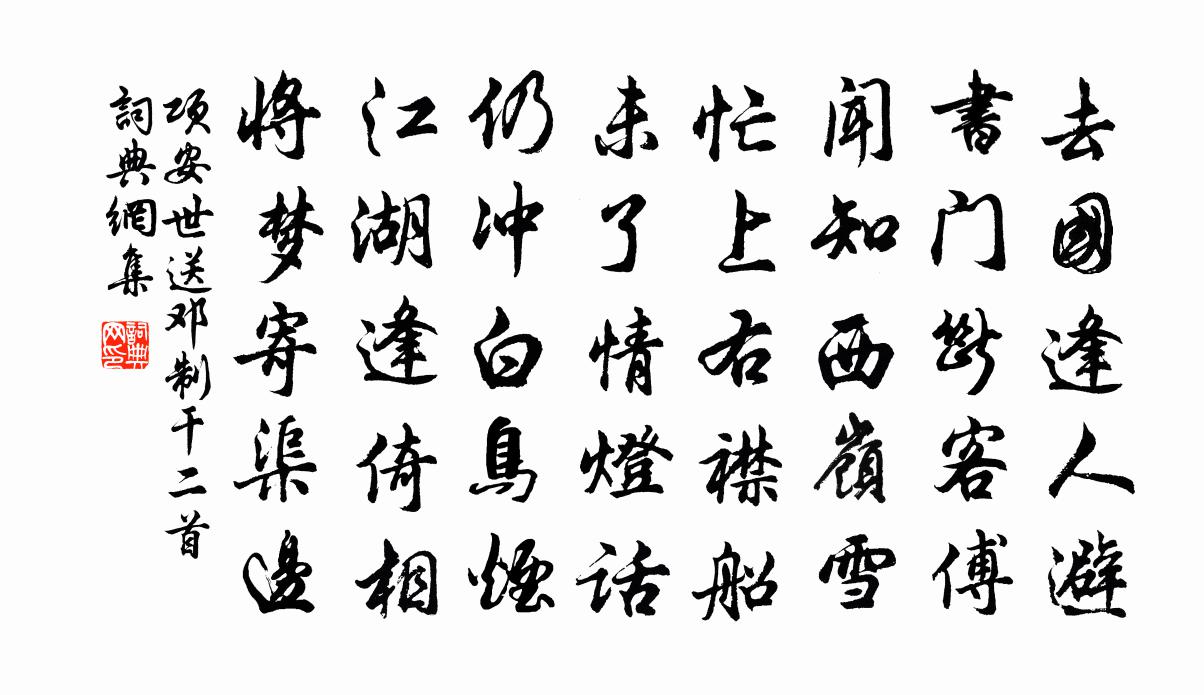 去國逢人避
書门斷客傅
闻知西嶺雪
忙上右襟船
未了情燈話
仍冲白鳥煙
江湖逢倚相
将梦寄渠邊
项安世送邓制干二首
詞典網集
詞典
网印